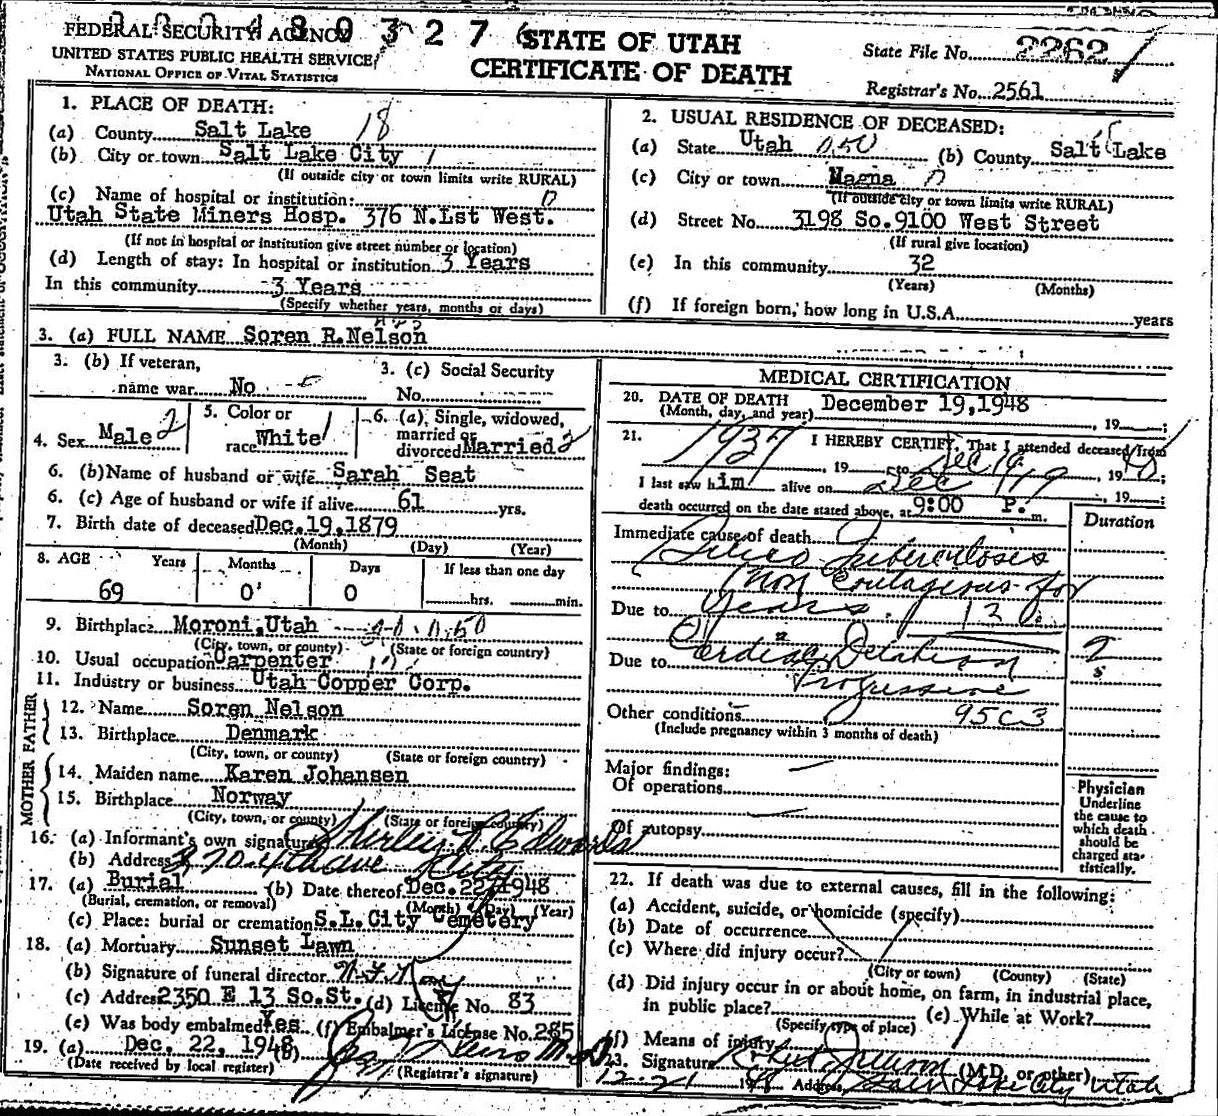 FEDERAL SECURITY AGENCY
UNITED STATES PUBLIC HEALTH SERVICE
NATIONAL OFFICE OF VITAL STATISTICS
STATE OF UTAH
CERTIFICATE OF DEATH
State File No. 2262
Registrar's No. 2561
1. PLACE OF DEATH:
(a) County Salt Lake 18
(b) City or town Salt Lake City 1
(If outside city or town limits write RURAL)
(c) Name of hospital or institution:
Utah State Miners Hosp. 376 N.1st West.
(If not in hospital or institution give street number or location)
(d) Length of stay: In hospital or institution 3 Years
In this community 3 Years
(Specify whether years, months or days)
2. USUAL RESIDENCE OF DECEASED:
(a) State Utah (b) County Salt Lake
(c) City or town Magna
(If outside city or town limits write RURAL)
(d) Street No. 3198 So.9100 West Street
(If rural give location)
(e) In this community 32
(Years) (Months)
(f) If foreign born, how long in U.S.A. years
3. (a) FULL NAME Soren R.Nelson
3. (b) If veteran,
name war No
3. (c) Social Security
No.
4. Sex Male 2
5. Color or
race White 1
6. (a) Single, widowed,
married or
divorced Married 2
6. (b) Name of husband or wife Sarah Seat
6. (c) Age of husband or wife if alive 61 yrs.
7. Birth date of deceased Dec.19,1879
(Month) (Day) (Year)
8. AGE Years Months Days If less than one day
69 0 0 hrs. min.
9. Birthplace Moroni,Utah
(City, town, or county) (State or foreign country)
10. Usual occupation Carpenter
11. Industry or business Utah Copper Corp.
FATHER
12. Name Soren Nelson
13. Birthplace Denmark
(City, town, or county) (State or foreign country)
MOTHER
14. Maiden name Karen Johansen
15. Birthplace Norway
(City, town, or county) (State or foreign country)
16. (a) Informant's own signature Shirley Edwards
(b) Address 4th ave City
17. (a) Burial (b) Date thereof Dec.22,1948
(Burial, cremation, or removal) (Month) (Day) (Year)
(c) Place: burial or cremation S.L.City Cemetery
18. (a) Mortuary Sunset Lawn
(b) Signature of funeral director
(c) Address 2350 E 13 So.St. (d) License No. 83
(e) Was body embalmed Yes (f) Embalmer's License No. 285
19. (a) Dec, 22, 1948 (b)
(Date received by local register) (Registrar's signature)
MEDICAL CERTIFICATION
20. DATE OF DEATH December 19,1948
(Month, day, and year) , 19
21. I HEREBY CERTIFY, That I attended deceased from
1937, 19 to Dec 19, 1948;
I last saw him alive on Dec 19, 19 ;
death occurred on the date stated above, at 9:00 P. m.
Duration
Immediate cause of death
Silico Tuberculosis
(Non Contagious for
Due to Years. 13
Cardiac Dilatation
Due to
Progressive
Other conditions 95C3
(Include pregnancy within 3 months of death)
Major findings:
Of operations
Of autopsy
Physician
Underline
the cause to
which death
should be
charged sta-
tistically.
22. If death was due to external causes, fill in the following:
(a) Accident, suicide, or homicide (specify)
(b) Date of occurrence
(c) Where did injury occur?
(City or town) (County) (State)
(d) Did injury occur in or about home, on farm, in industrial place,
in public place? (e) While at Work?
(Specify type of place)
(f) Means of injury
23. Signature (M.D. or other)
12-21 1948 Address Salt Lake City Utah